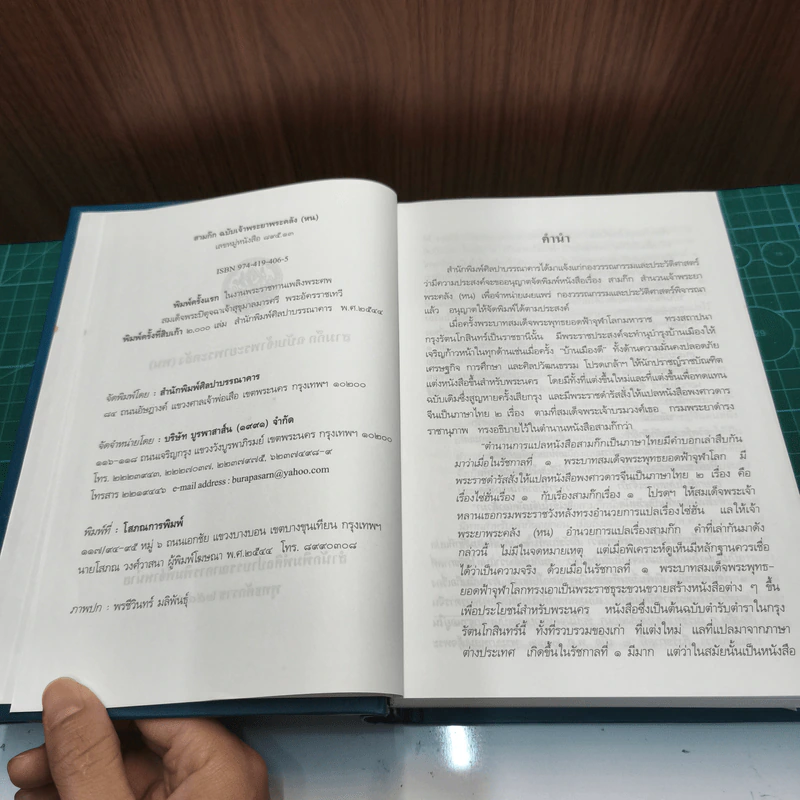 สามก๊ก ฉบับเจ้าพระยาพระคลัง (หน)
เลขหมู่หนังสือ ๘๙๕.๑๓
ISBN 974-419-406-5
พิมพ์ครั้งแรก ในงานพระราชทานเพลิงพระศพ
สมเด็จพระปิตุจฉาเจ้าสุขุมาลมารศรี พระอัครราชเทวี
พิมพ์ครั้งที่สิบเก้า ๒,๐๐๐ เล่ม สำนักพิมพ์ศิลปาบรรณาคาร พ.ศ.๒๕๔๔
จัดพิมพ์โดย : สำนักพิมพ์ศิลปาบรรณาคาร
๘๔ ถนนอัษฎางค์ แขวงศาลเจ้าพ่อเสือ เขตพระนคร กรุงเทพฯ ๑๐๒๐๐
จัดจำหน่ายโดย : บริษัท บูรพาสาส์น (๑๙๙๑) จำกัด
๑๑๖-๑๑๘ ถนนเจริญกรุง แขวงวังบูรพาภิรมย์ เขตพระนคร กรุงเทพฯ ๑๐๒๐๐
โทร. ๒๒๒๑๙๔๓, ๒๒๒๗๐๓๗, ๒๒๓๗๙๗๕, ๖๒๓๗๔๙๘-๙
โทรสาร ๒๒๑๙๔๔๖ e-mail address : burapasarn@yahoo.com
พิมพ์ที่ : โสภณการพิมพ์
๑๑๗/๙๔-๙๕ หมู่ ๖ ถนนเอกชัย แขวงบางบอน เขตบางขุนเทียน กรุงเทพฯ
นายโสภณ วงศ์วาสนา ผู้พิมพ์โฆษณา พ.ศ.๒๕๔๔ โทร. ๘๙๙๐๓๐๘
ภาพปก : พรชีวินทร์ มลิพันธุ์
คำนำ
สำนักพิมพ์ศิลปาบรรณาคารได้มาแจ้งแก่กองวรรณกรรมและประวัติศาสตร์
ว่ามีความประสงค์จะขออนุญาตจัดพิมพ์หนังสือเรื่อง สามก๊ก สำนวนเจ้าพระยา
พระคลัง (หน) เพื่อจำหน่ายเผยแพร่ กองวรรณกรรมและประวัติศาสตร์พิจารณา
แล้ว อนุญาตให้จัดพิมพ์ได้ตามประสงค์
เมื่อครั้งพระบาทสมเด็จพระพุทธยอดฟ้าจุฬาโลกมหาราช ทรงสถาปนา
กรุงรัตนโกสินทร์เป็นราชธานีนั้น มีพระราชประสงค์จะทำนุบำรุงบ้านเมืองให้
เจริญก้าวหน้าในทุกด้านเช่นเมื่อครั้ง "บ้านเมืองดี" ทั้งด้านความมั่นคงปลอดภัย
เศรษฐกิจ การศึกษา และศิลปวัฒนธรรม โปรดเกล้าฯ ให้นักปราชญ์ราชบัณฑิต
แต่งหนังสือขึ้นสำหรับพระนคร โดยมีทั้งที่แต่งขึ้นใหม่และที่แต่งขึ้นเพื่อทดแทน
ฉบับเดิมซึ่งสูญหายครั้งเสียกรุง และมีพระราชดำรัสสั่งให้แปลหนังสือพงศาวดาร
จีนเป็นภาษาไทย ๒ เรื่อง ตามที่สมเด็จพระเจ้าบรมวงศ์เธอ กรมพระยาดำรง
ราชานุภาพ ทรงอธิบายไว้ในตำนานหนังสือสามก๊กว่า
"ตำนานการแปลหนังสือสามก๊กเป็นภาษาไทยมีคำบอกเล่าสืบกัน
มาว่าเมื่อในรัชกาลที่ ๑ พระบาทสมเด็จพระพุทธยอดฟ้าจุฬาโลก มี
พระราชดำรัสสั่งให้แปลหนังสือพงศาวดารจีนเป็นภาษาไทย ๒ เรื่อง คือ
เรื่องไซ่ฮั่นเรื่อง ๑ กับเรื่องสามก๊กเรื่อง ๑ โปรดฯ ให้สมเด็จพระเจ้า
หลานเธอกรมพระราชวังหลังทรงอำนวยการแปลเรื่องไซ่ฮั่น แลให้เจ้า
พระยาพระคลัง (หน) อำนวยการแปลเรื่องสามก๊ก คำที่เล่ากันมาดัง
กล่าวนี้ ไม่มีในจดหมายเหตุ แต่เมื่อพิเคราะห์ดูเห็นมีหลักฐานควรเชื่อ
ได้ว่าเป็นความจริง ด้วยเมื่อในรัชกาลที่ ๑ พระบาทสมเด็จพระพุทธ-
ยอดฟ้าจุฬาโลกทรงเอาเป็นพระราชธุระขวนขวายสร้างหนังสือต่าง ๆ ขึ้น
เพื่อประโยชน์สำหรับพระนคร หนังสือซึ่งเป็นต้นฉบับตำรับตำราในกรุง
รัตนโกสินทร์นี้ ทั้งที่รวบรวมของเก่า ที่แต่งใหม่ แลที่แปลมาจากภาษา
ต่างประเทศ เกิดขึ้นในรัชกาลที่ ๑ มีมาก แต่ว่าในสมัยนั้นเป็นหนังสือ